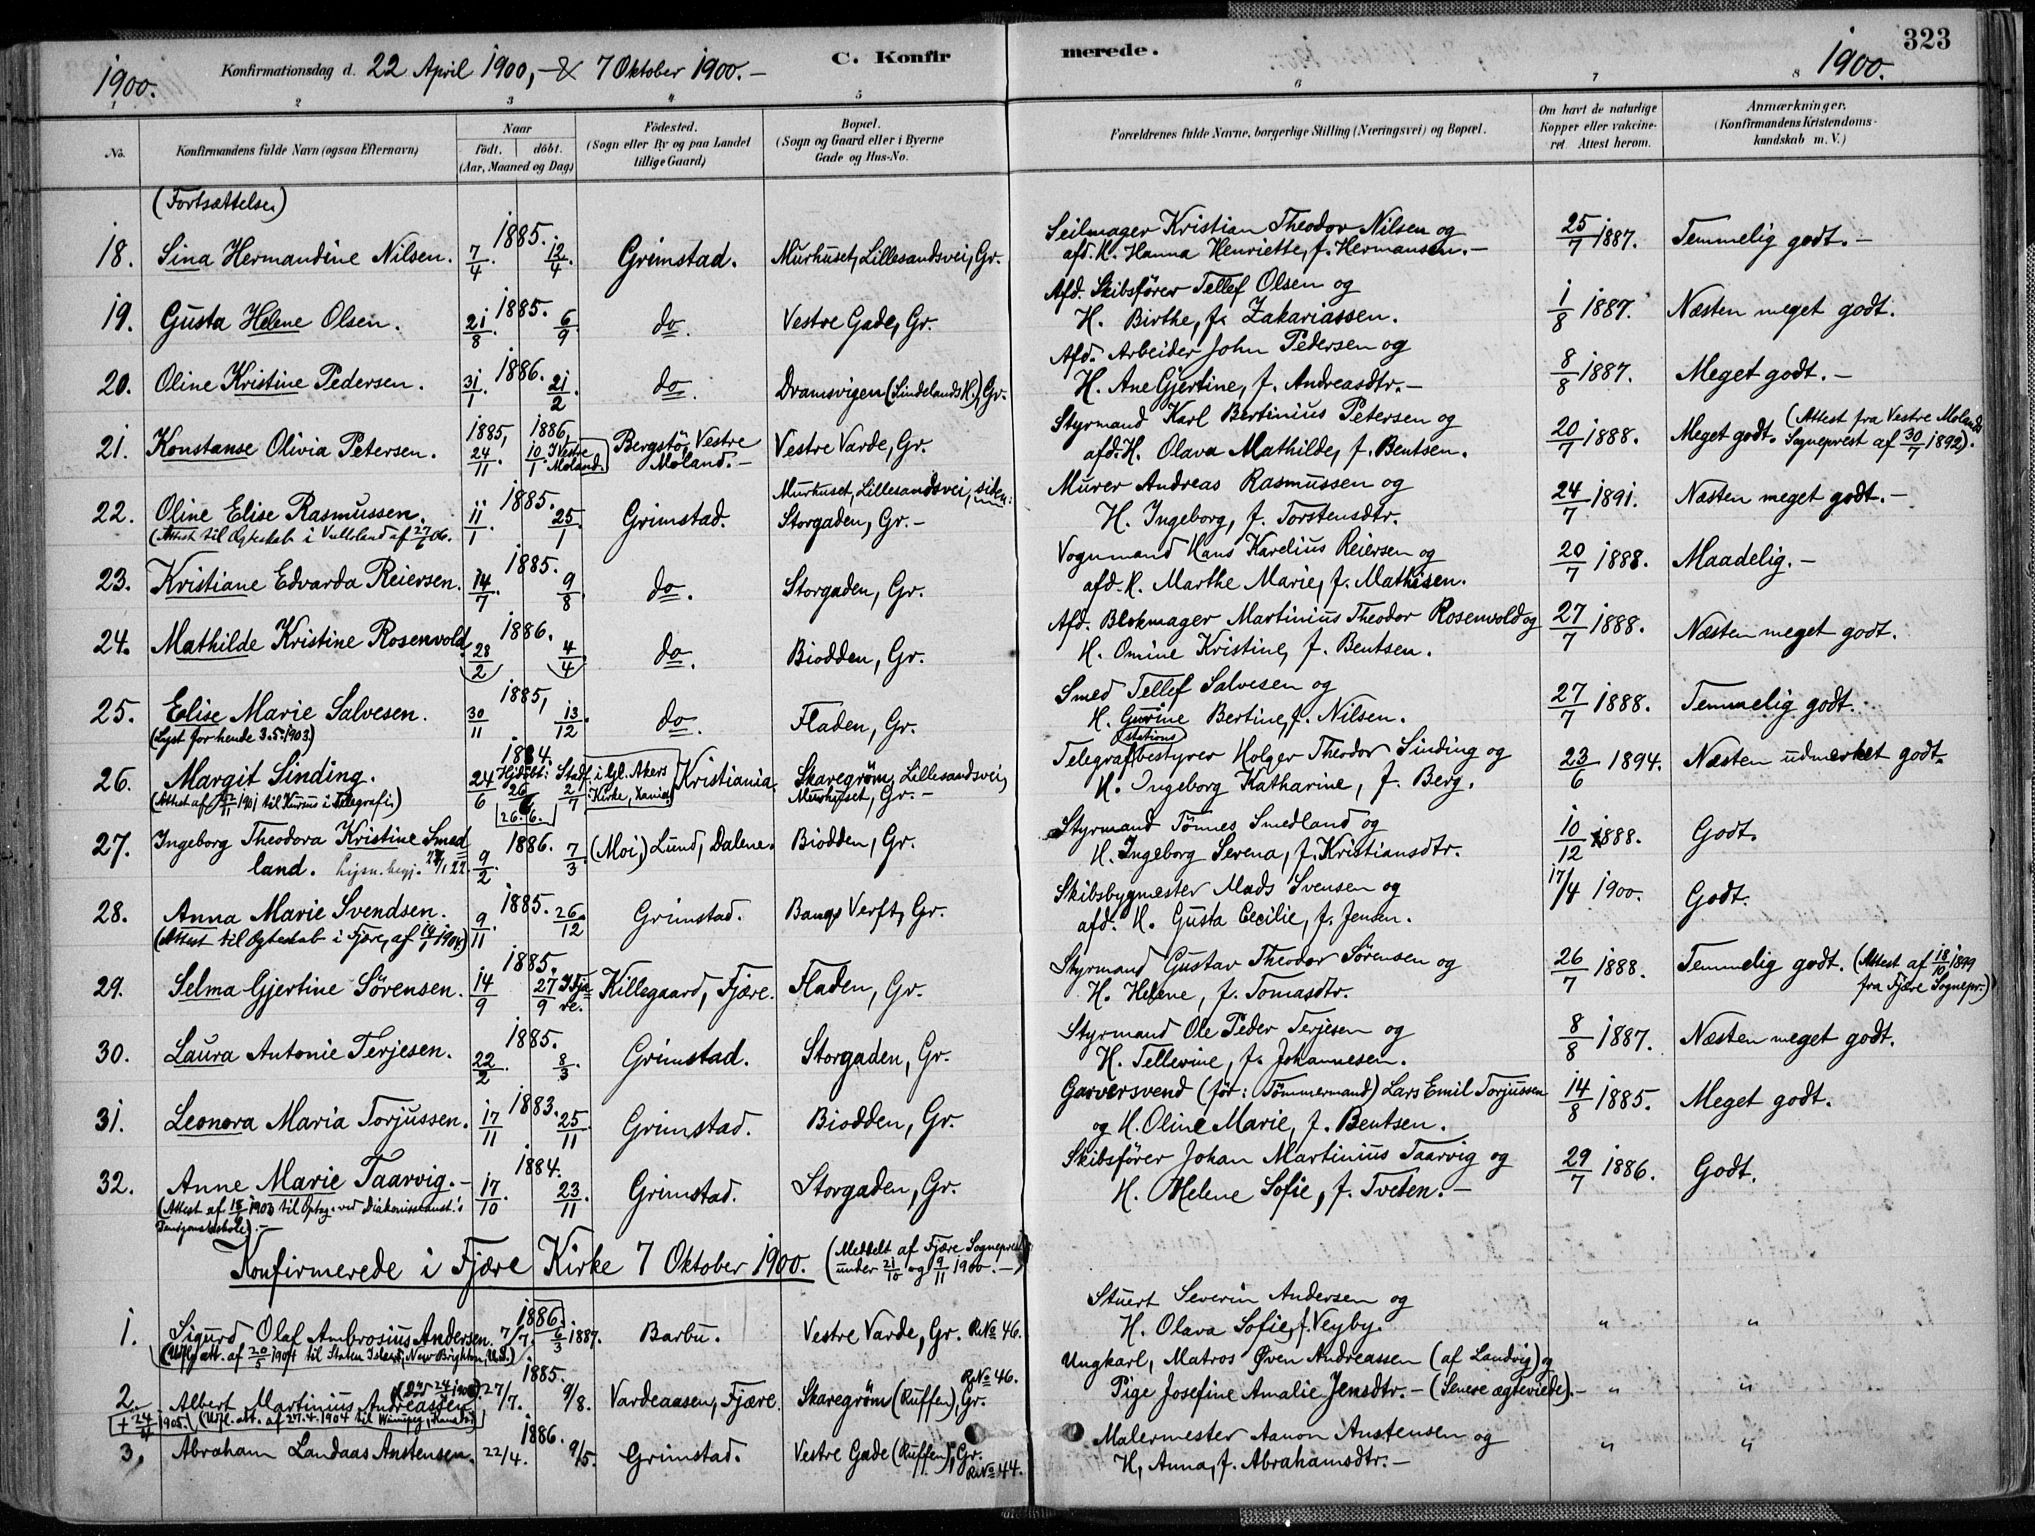 323
1900. Konfirmationsdag d. 22 April 1900, - & 7 Oktober 1900. - C. Konfirmerede. 1900.
1 2 3 4 5 6 7 8
No. Konfirmandens fulde Navn (ogsaa Efternavn) Naar født. døbt. (Aar, Maaned og Dag) Fødested. (Sogn eller By og paa Landet tillige Gaard) Bopæl. (Sogn og Gaard eller i Byerne Gade og Hus-No. Forældrenes fulde Navne, borgerlige Stilling (Næringsvei) og Bopæl. Om havt de naturlige Kopper eller vakcineret. Attest herom. Anmærkninger. (Konfirmandens Kristendomskundskab m. V.)
(Fortsættelse.)
18. Sina Hermandine Nilsen. 1885. 7/4. 12/4. Grimstad. Murhuset, Lillesandsvei, Gr. Seilmager Kristian Theodor Nilsen og
afd. H. Hanna Henriette, f. Hermansen. - 25/7 1887. Temmelig godt. -
19. Gusta Helene Olsen. 1885. 21/8 6/9. do. Vestre Gade, Gr. Afd. Skibsfører Tellef Olsen og
H. Birthe, f. Zakariassen. 1/8 1887. Næsten meget godt.
20. Oline Kristine Pedersen. 1886. 31/1. 21/2. do. Dramsvigen (Lindelands H.), Gr. Afd. Arbeider John Pedersen og
H. Ane Gjertine, f. Andreasdtr. - 8/8 1887. Meget godt. -
21. Konstanse Olivia Petersen. 1885, 24/11. 1886, 10/1. I Vestre Moland. Bergstø, Vestre Moland. - Vestre Varde, Gr. Styrmand Karl Bertinius Petersen og
afd. H. Olava Mathilde, f. Bentsen. 20/7 1888. Meget godt. (Attest fra Vestre Molands Sogneprest af 30/7 1892).
22. Oline Elise Rasmussen. 1885. 11/1. 25/1 Grimstad. Murhuset, Lillesandsvei, siden: Storgaden, Gr. - Murer Andreas Rasmussen og
H. Ingeborg, f. Torstensdtr. 24/7 1891. Næsten meget godt. -
(Attest til Egteskab i af 27/6 06.
23. Kristiane Edvarda Reiersen. 1885. 14/7. 9/8. do. Storgaden, Gr. Vognmand Hans Karelius Reiersen og
afd. H. Marthe Marie, f. Mathisen. 20/7 1888. Maadelig. -
24. Mathilde Kristine Rosenvold 1886. 28/2 4/4 do. Biodden, Gr. Afd. Blokmager Martinius Theodor Rosenvold og
H. Omine Kristine, f. Bentsen. 27/7 1888. Næsten meget godt.
25. Elise Marie Salvesen. 1885, 30/11 13/12. do. Fladen, Gr. Smed Tellef Salvesen og
H. Gurine Bertine, f. Nilsen. 27/7 1888. Temmelig godt.
(Lyst for hende 3.5.1903.)
26. Margit Sinding. 1884. 24/6 Hjdøbt: 26/6 Stadf. 2/7 i Gl. Akers Kirke, Xania. Kristiania. Skaregrøm, Lillesandsvei, Murhuset, Gr. - Telegrafstationsbestyrer Holger Theodor Sinding og
H. Ingeborg Katharine, f. Berg. 23/6 1894. Næsten udmerket godt.
(Attest af 1901 til Kursus i Telegrafi.) 26.6.
27. Ingeborg Theodora Kristine Smedland. 1886. 9/2. 7/3. (Moi,) Lund, Dalene. Biodden, Gr. Styrmand Tønnes Smedland og
H. Ingeborg Serena, f. Kristiansdtr. 10/12 1888. Godt.
28. Anna Marie Svendsen. 1885. 9/11. 26/12. Grimstad. Bangs Verft, Gr. Skibsbygmester Mads Svensen og
afd. H. Gusta Cecilie, f. Jensen. 17/4 1900. Godt.
(Attest til Egteskab i Fjære, af 1904)
29. Selma Gjertine Sørensen. 1885. 14/9 27/9 I Fjære. Killegaard, Fjære. Fladen, Gr. Styrmand Gustav Theodor Sørensen og
H. Helene, f. Tomasdtr. 26/7 1888. Temmelig godt. (Attest af 18/10 1899 fra Fjære Sognepr.)
30. Laura Antonie Terjesen. 1885. 22/2. 8/3. Grimstad. Storgaden, Gr. Styrmand Ole Peder Terjesen og
H. Tellevine, f. Johannesen. 8/8 1887. Næsten meget godt.
31. Leonora Maria Torjussen. 1883. 17/11 25/11 Grimstad. Biodden, Gr. Garversvend (før: Tømmermand) Lars Emil Torjussen
og H. Oline Marie, f. Bentsen. 14/8 1885. Meget godt.
32. Anne Marie Taarvig. - 1884. 17/10. 23/11. Grimstad. Storgaden, Gr. Skibsfører Johan Martinius Taarvig og
H. Helene Sofie, f. Tveten. - 29/7 1886. Godt.
(Attest af 1903 til Optag. ved Diakonisseanst.'s
Konfirmerede i Fjære Kirke 7 Oktober 1900. (Meddelt af Fjære Sogneprest under 21/10 og 9/11 1900. -)
1. Sigurd Olaf Ambrosius Andersen 1886. 7/7. 6/3 1887. Barbu. Vestre Varde, Gr. R.No 46. Stuert Severin Andersen og
H. Olava Sofie, f. Veyby. " "
(Udfl. att. af 20/5 1904 til Staten Island, New Brighton, U.S.)
2. Albert Martinius Andreassen 1885. 27/7. 9/8. Vardeaasen, Fjære. Skaregrøm (Ruffen), Gr. R.No 46. Ungkarl, Matros Øven Andreassen (af Landvig) og
Pige Josefine Amalie Jensdtr. - (Senere ægteviede). - " "
+ 24/4 1905. (Udfl. att. af 27.4.1904 til Winnipeg, Kanada)
3. Abraham Landaas Anstensen. 1886. 22/4. 9/5. Grimstad. Vestre Gade (Ruffen), Gr. R.No 44. Malermester Aanon Anstensen og
H. Anna, f. Abrahamsdtr. - " "